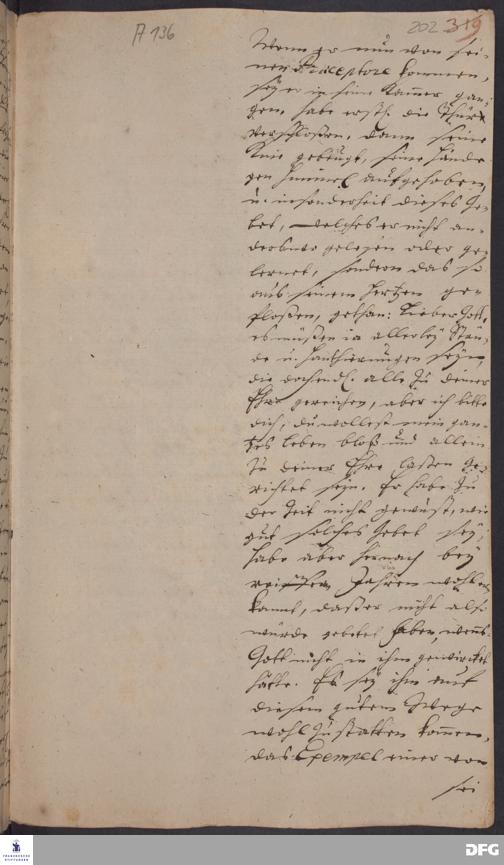 A 136
202 319
Wenn er nun von sei-
nen Præceptore kommen,
sey er in seine Kamer gan-
gen, habe erstl. die Thür
verschloßen, dann seine
Knie gebeügt, seine Hände
gen Himmel aufgehoben,
u. insonderheit dieses Ge-
bet, welches er nicht an-
derswo gelesen oder ge-
lernet, sondern das so
aus seinem Hertzen ge-
floßen, gethan: Lieber Gott,
es müßen ia allerley Stän-
de u. Handthierungen seyn,
die doch endl. alle zu deiner
Ehre gereichen, aber ich bitte
dich, du wollest mein gan-
tzes Leben bloß und allein
zu deiner Ehre laßen ge-
richtet seyn. Er habe zu
der Zeit nicht gewust, wie
gut solches Gebet sey;
habe aber hernach bey
Jahren wohl er-
kannt, daß er nicht also
würde gebetet haben, wenn
Gott nicht in ihm gewircket
hätte. Es sey ihm auf
diesem gutem Wege
wohl zu statten kommen,
das Exempel einer von
sei
FRANCKESCHE STIFTUNGEN
DFG